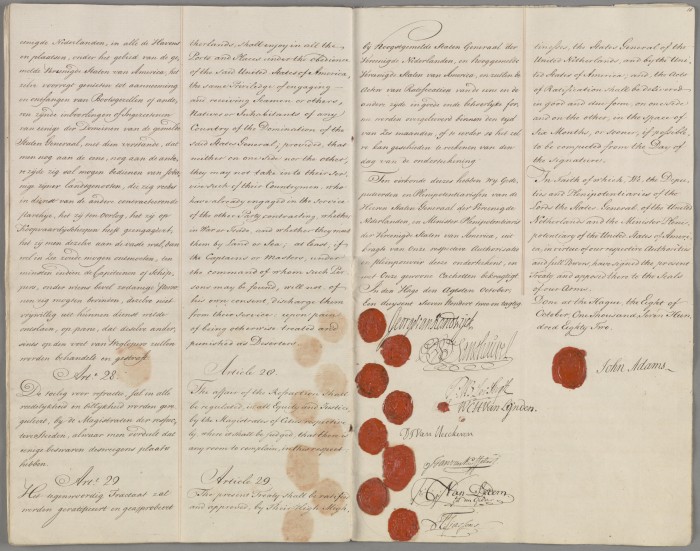 enigde Nederlanden, in alle de Havens
en plaatsen, onder het gebied van de ge-
melde Vereenigde Staten van America, het
zelve voorregt genieten tot aanneming
en ontfangen van Zeevolk of ande-
ren zijnde
van eenige der Dominien van de gemelde
Staten Generaal, mits
men nog aan de eene, nog aan de ande-
re zijde zig zal mogen bedienen van
nige zijner landgenooten, die zig reeds
in dienst van de andere contracteerende
het zij ten Oorlog, het zij op
Koopvaardijschepen heeft geengageert,
het zij men dezelve aan de vaste wal, dan
wel in Zee zoude mogen ontmoeten, ten
minsten indien de Capiteinen of Schip-
pers, onder wiens bevel zodanige Perso-
nen zig mogten bevinden, dezelve niet
vrijwillig uit hunnen dienst wilde
ontslaan, op pœne, dat dezelve ander-
saats op den voet van Wegloopers zullen
worden behandelt en gestraft.
Art.l 28
De
en billijkheid worden gere-
guleert, bij de Magistraten der respec-
tive steden, alwaar men oordeelt dat
eenige bezwaren deswegens plaats
hebben.
Art.l 29
Het tegenwoordig Tractaat zal
worden geratificeert en geapprobeert
therlands, shall enjoy in all the
Ports and Places under the obedience
of the said United States of America,
the same Privilege of engaging
and receiving Seamen or others,
Natives or Inhabitants of any
Country of the Domination of the
said States General, provided, that
neither on one Side nor the other,
they may not take into their Ser-
vice such of their Countrymen, who
have already engaged in the Service
of the other Party contracting, whether
in War or Trade, and whether they meet
them by Land or Sea; at least, if
the Captains or Masters, under
the command of whom such Per-
sons may be found, will not, of
his own consent, discharge them
from their Service: upon pain
of being otherwise treated and
punished as Deserters.
Article 28.
The affair of the Refraction shall
be regulated, in all Equity and Justice,
by the Magistrates of Cities respective-
ly, where it shall be judged, that there is
any room to complain, in this respect.
Article 29
The present Treaty shall be ratified
and approved, by Their High Migh-
by Hooggemelde Staten Generaal der
Vereenigde Nederlanden, en hooggemelde
Vereenigde Staten van America, en zullen de
Acten van Ratificatie van de eene en de
andere zijde in goede en de behoorlijke for-
me worden uitgeleverd binnen den tijd
van zes maanden, of eerder zo het zal
kan geschieden te rekenen van den
dag van de ondertekening
Ten oirkonde dezes wij Gede-
puteerden en Plenipotentiarissen van de
Heeren Staten Generaal der Vereenigde
Nederlanden, en Minister Plenipotentiaris
der Vereenigde Staten van America, uit
kragt van Onze respective Authorisatie
en Pleinpouvoir deze ondertekenden, en
met Onze gewone Cachetten bekragtigd
In den Hage den Agtsten October
Een duizend Seven hondert twee en tachtig
tinesses, the States General of the
United Netherlands, and by the Uni-
ted States of America; and the Acts
of Ratification shall be delivered
in good and due form, on one Side,
and on the other, in the space of
Six Months, or sooner, if possible,
to be computed from the Day of
the Signature.
In Faith of which, We, the Depu-
ties and Plenipotentiaries of the
Lords the States General of the United
Netherlands and the Minister Pleni-
potentiary of the United States of Ameri-
ca, in virtue of our respective Authorities
and full Powers, have signed the present
Treaty and apposed thereto the Seals
of our Arms.
Done at the Hague, the Eight of
October, One thousand Seven Hun-
dred Eighty Two.
George van Randwijck
John Adams
W C H van Lynden
D J Van Heeckeren